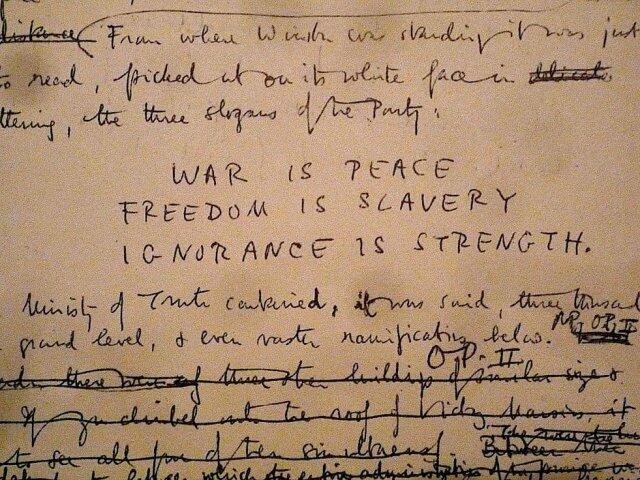 distance From where Winston was standing it was just
to read, picked out on its white face in delicate
ttering, the three slogans of the Party:
WAR IS PEACE
FREEDOM IS SLAVERY
IGNORANCE IS STRENGTH.
Ministry of Truth contained, it was said, three thousand
ground level, & even vaster ramifications below.
O.P. II
there were three other buildings of similar size &
If you climbed onto the roof of Victory Mansions, it
to see all four of them simultaneously. Between
which the entire administration